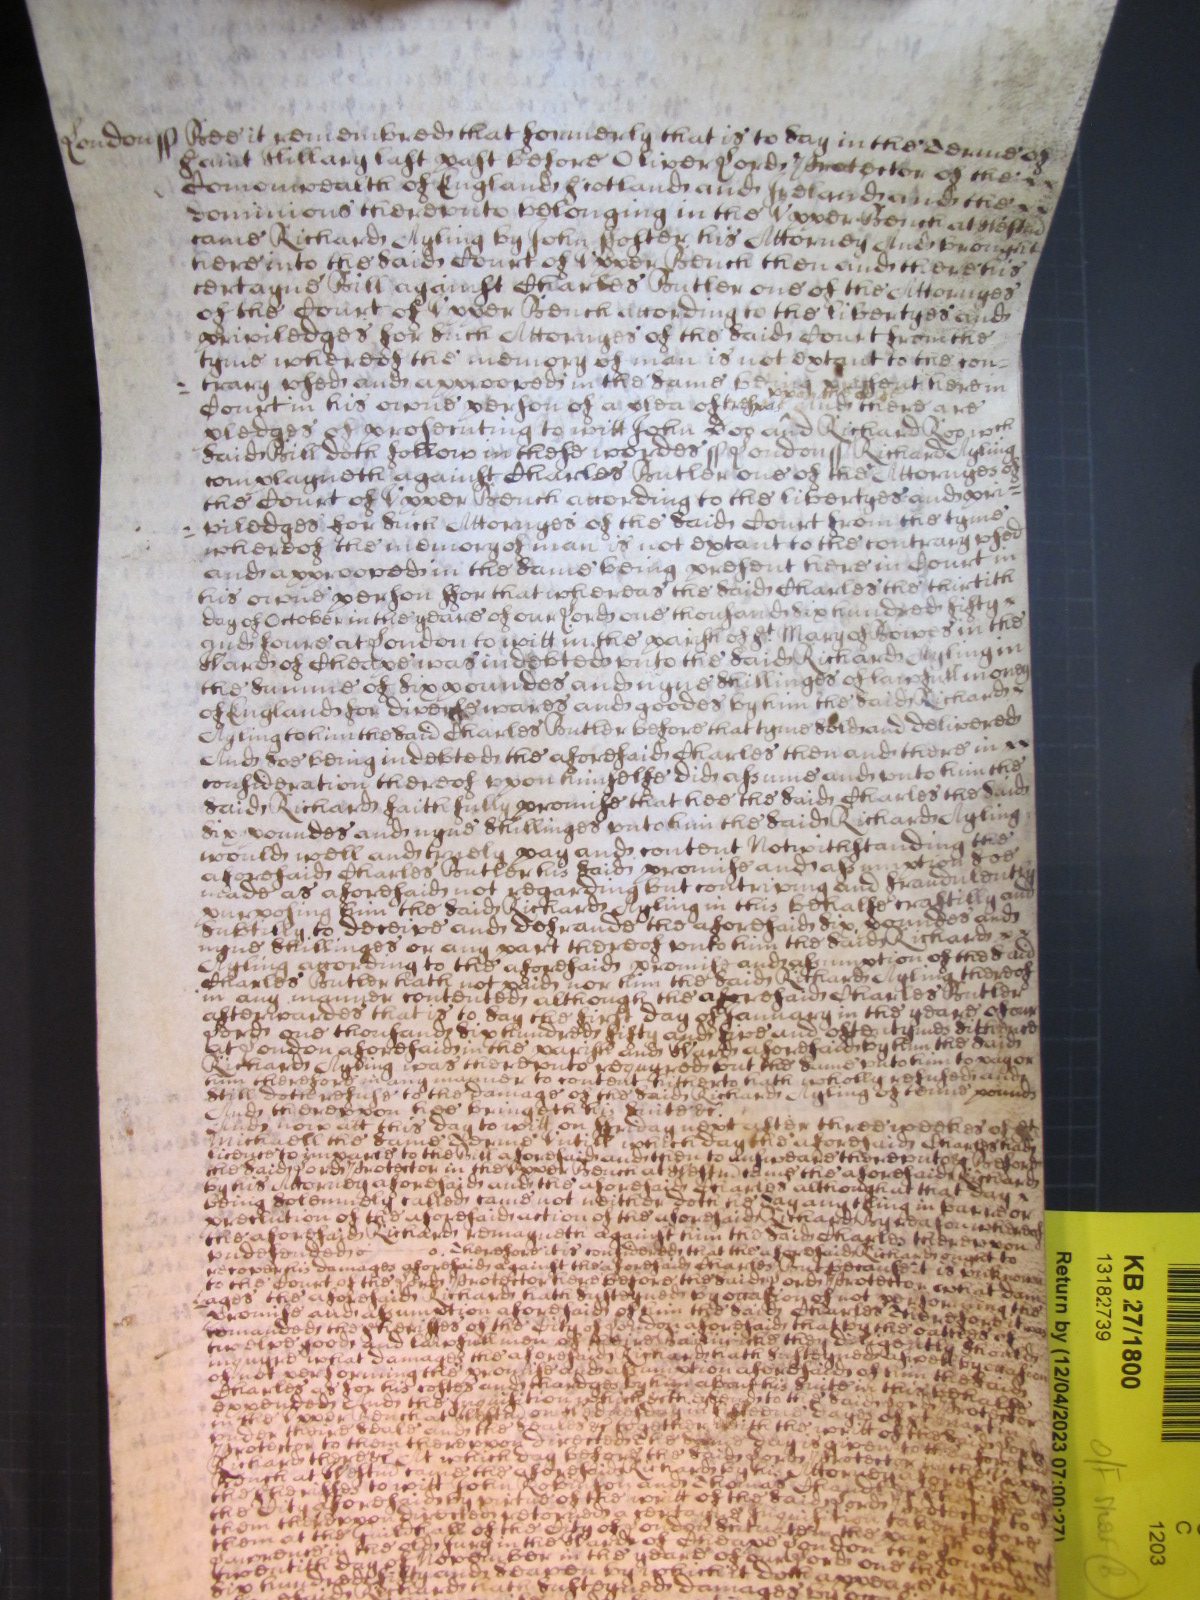 London ss Bee it remembred that formerly that is to say in the Terme of
Saint Hillary last past before Oliver Lord Protector of the
Comonwealth of England Scotland and Ireland and the
dominions thereunto belonging in the Upper Bench at Westmr
came Richard Ayling by John Foster his Attorney And brought
here into the said Court of Upper Bench then and there his
certayne Bill against Charles Butler one of the Attornyes
of the Court of Upper Bench according to the libertyes and
priviledges for such Attornyes of the said Court from the
tyme whereof the memory of man is not extant to the con-
trary used and approoved in the same being present here in
Court in his owne person of a plea of trespas upon the Case And there are
pledges of prosecuting to witt John Doo and Richard Roo wch
said Bill doth follow in these wordes ss London ss Richard Ayling
complayneth against Charles Butler one of the Attornyes of
the Court of Upper Bench according to the libertyes and pri=
viledges for such Attornyes of the said Court from the tyme
whereof the memory of man is not extant to the contrary used
and approoved in the same being present here in Court in
his owne person For that whereas the said Charles the thirtith
day of October in the yeare of our Lord one thousand six hundred fifty
and foure at London to witt in the parish of St Mary of Bowes in the
Ward of Cheape was indebted unto the said Richard Ayling in
the summe of six poundes and nyne shillinges of lawfull money
of England for diverse wares and goodes by him the said Richard
Ayling to him the said Charles Butler before that tyme sold and delivered
And soe being indebted the aforesaid Charles then and there in
consideration thereof upon himselfe did assume and unto him the
said Richard faithfully promise that hee the said Charles the said
six poundes and nyne shillinges unto him the said Richard Ayling
would well and truely pay and content Notwithstanding the
aforesaid Charles Butler his said promise and assumption soe
made as aforesaid not regarding but contriving and fraudulently
purposing him the said Richard Ayling in this behalfe craftilly and
subtilly to deceive and defraude the aforesaid six poundes and
nyne shillinges or any part thereof unto him the said Richard
Ayling according to the aforesaid promise and assumption of the said
Charles Butler hath not paid nor him the said Richard Ayling thereof
in any manner contented although the aforesaid Charles Butler
afterwardes that is to say the first day of January in the yeare of our
Lord one thousand six hundred fifty and five and often tymes sithence
at London aforesaid in the parish and Ward aforesaid by him the said
Richard Ayling was thereunto requyred but the same unto him to pay or
him therefore in any manner to content hitherto hath wholly refused and
still doth refuse to the damage of the said Richard Ayling of tenne poundes
And thereupon hee bringeth his suite &c.
And now att this day to witt on Fryday next after three weekes of St
Michaell the same Terme Untill which day the aforesaid Charles had
licence to imparle to the Bill aforesaid and then to answeare thereunto &c Before
the said Lord Protector in the Upper Bench at Westmr came the aforesaid Richard
by his Attorney aforesaid and the aforesaid Charles although at that day
being solemnely called came not neither doth he say any thing in barre or
preclution of the aforesaid action of the aforesaid Richard By reason whereof
the aforesaid Richard remayneth against him the said Charles thereupon
undefended &c. Therefore it is considered that the aforesaid Richard ought to
recover his damages aforesaid against the aforesaid Charles But because it is unknowne
to the Court of the Lord Protector here before the said Lord Protector what dam
ages the aforesaid Richard hath susteyned by occasion of not performing the
promise and assumption aforesaid of him the said Charles Therefore it was
comanded the Sheriffes of the City of London aforesaid that by the oathes of
twelve good and lawfull men of theire Bailiwicke they dilligently should
inquyre what damages the aforesaid Richard hath susteyned aswell by occasion
of not performing the promise and assumption aforesaid of him the said
Charles as for his costes and chardges by him about his suite in this behalfe
expended And the inquisition
in the Upper Bench at Westmr
under theire Seales and the Seales together with the writt of the said Lord
Protector to them thereupon directed The same day is given to the
Richard there &c At which day before the said Lord Protector in the Upper
Bench at Westmr came the aforesaid Richard by his Attorney aforesaid
the Sheriffes to witt John Robinson and Thomas
the City aforesaid by virtue of the writt of the said Lord Protector to
them thereupon directed retorned a certayne Inquisition taken before
them at the Guildhall of the City of London scituate in the parish of St
Lawrence in the old Jury in the Ward of Cheape London the
twentith day of November in the yeare of our Lord one thousand
six hundred fifty and seaven by which it doth appeare that the
aforesaid Richard hath susteyned damages by
KB 27/1800
13182739
Return by (12/04/2023 07:00:27)
C
1203